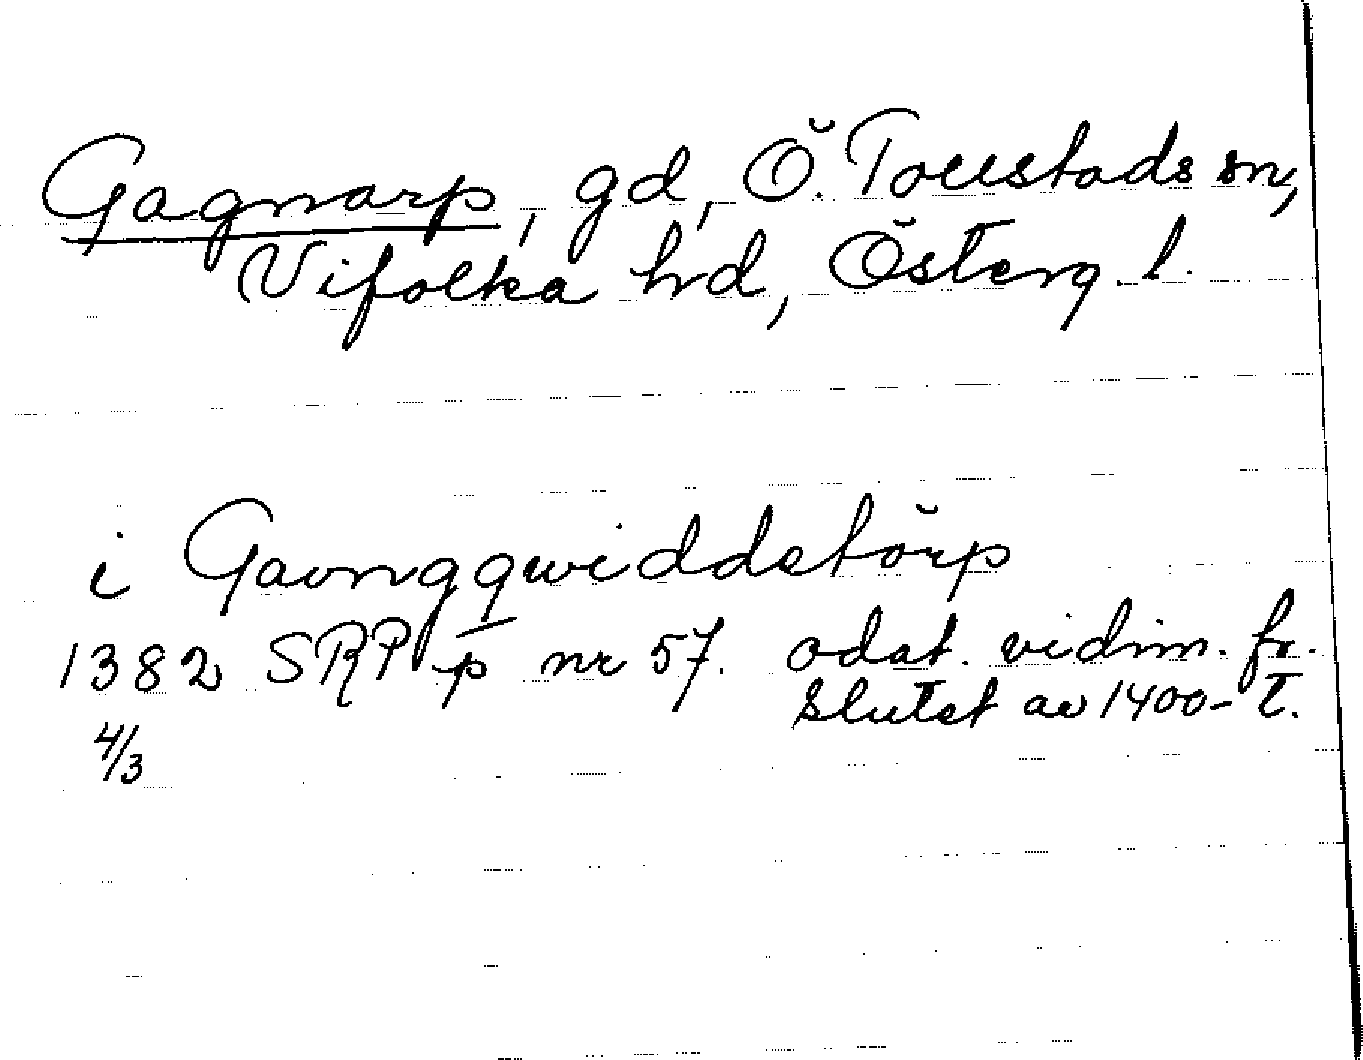 Gagnarp, gd, Ö. Tollstads sn,
Vifolka hd, Österg. l.
i Gavngqwiddetörp
1382 SRP p nr 57. odat. vidim. fr.
slutet av 1400-t.
4/3